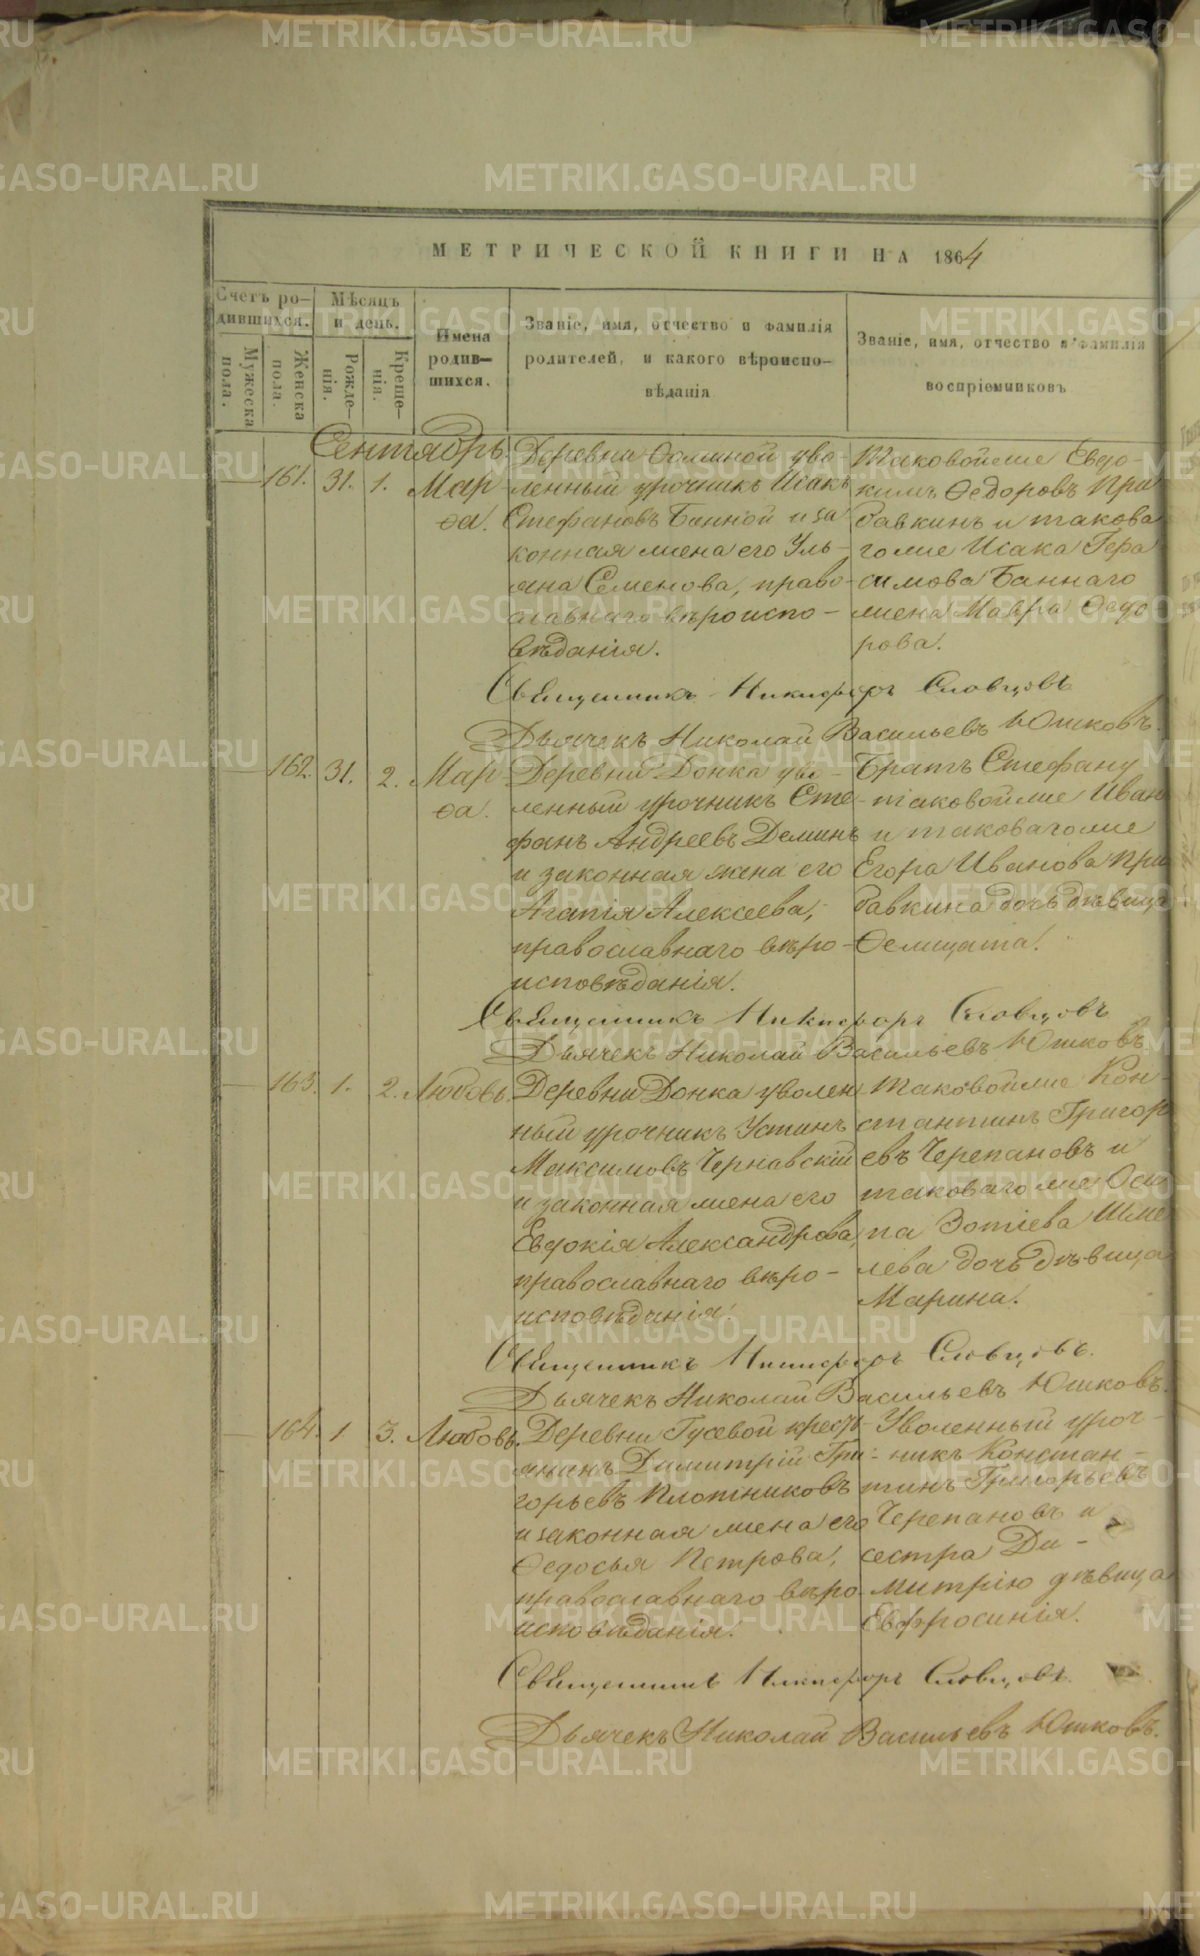 МЕТРИЧЕСКОЙ КНИГИ НА 1864
Счетъ ро-
дившихся.
Мужеска
пола.
Женска
пола.
Мѣсяцъ
и день.
Рожде-
нія.
Креще-
нія.
Имена
родив-
шихся.
Званіе, имя, отчество и фамилія
родителей, и какого вѣроиспо-
вѣданія
Званіе, имя, отчество и фамилія
воспріемниковъ
Сентябрь.
161. 31. 1. Мар
ѳа.
Деревни уво-
ленный урочникъ Исакъ
Стефановъ Банной и за
конная жена его Уль-
яна Семенова, право-
славнаго вѣроиспо-
вѣданія.
Таковойже Евдо-
кимъ Ѳедоровъ При
бавкинъ и такова
гоже Исака Гера
симова Баннаго
жена Мавра Ѳедо
рова.
Священникъ Никифоръ Словцовъ
Дьячекъ Николай Васильевъ Юшковъ.
162. 31. 2. Мар
ѳа.
Деревни Донка уво-
ленный урочникъ Сте-
фанъ Андреевъ Деминъ
и законная жена его
Агапія Алексеева,
православнаго вѣро-
исповѣданія.
Братъ Стефану
таковойже Иван
и таковагоже
Егора Иванова При
бавкина дочь дѣвица
Ѳелицата.
Священникъ Никифоръ Словцовъ
Дьячекъ Николай Васильевъ Юшковъ
163. 1. 2. Любовь.
Деревни Донка уволен
ный урочникъ Устинъ
Максимовъ Чернавскій
и законная жена его
Евдокія Александрова,
православнаго вѣро-
исповѣданія.
Таковойже Кон-
стантинъ Григор
евъ Черепановъ и
таковагоже Оси
па Зотіева Шме
лева дочь дѣвица
Марина.
Священникъ Никифоръ Словцовъ.
Дьячекъ Николай Васильевъ Юшковъ.
164. 1 3. Любовь.
Деревни Гусевой кресть-
янинъ Димитрій Гри-
горьевъ Плотниковъ
и законная жена его
Ѳедосья Петрова,
православнаго вѣро
исповѣданія.
Уволенный уроч-
никъ Констан-
тинъ Григорьевъ
Черепановъ и
сестра Ди-
митрію дѣвица
Евфросинія.
Священникъ Никифоръ Словцовъ.
Дьячекъ Николай Васильевъ Юшковъ.
METRIKI.GASO-URAL.RU